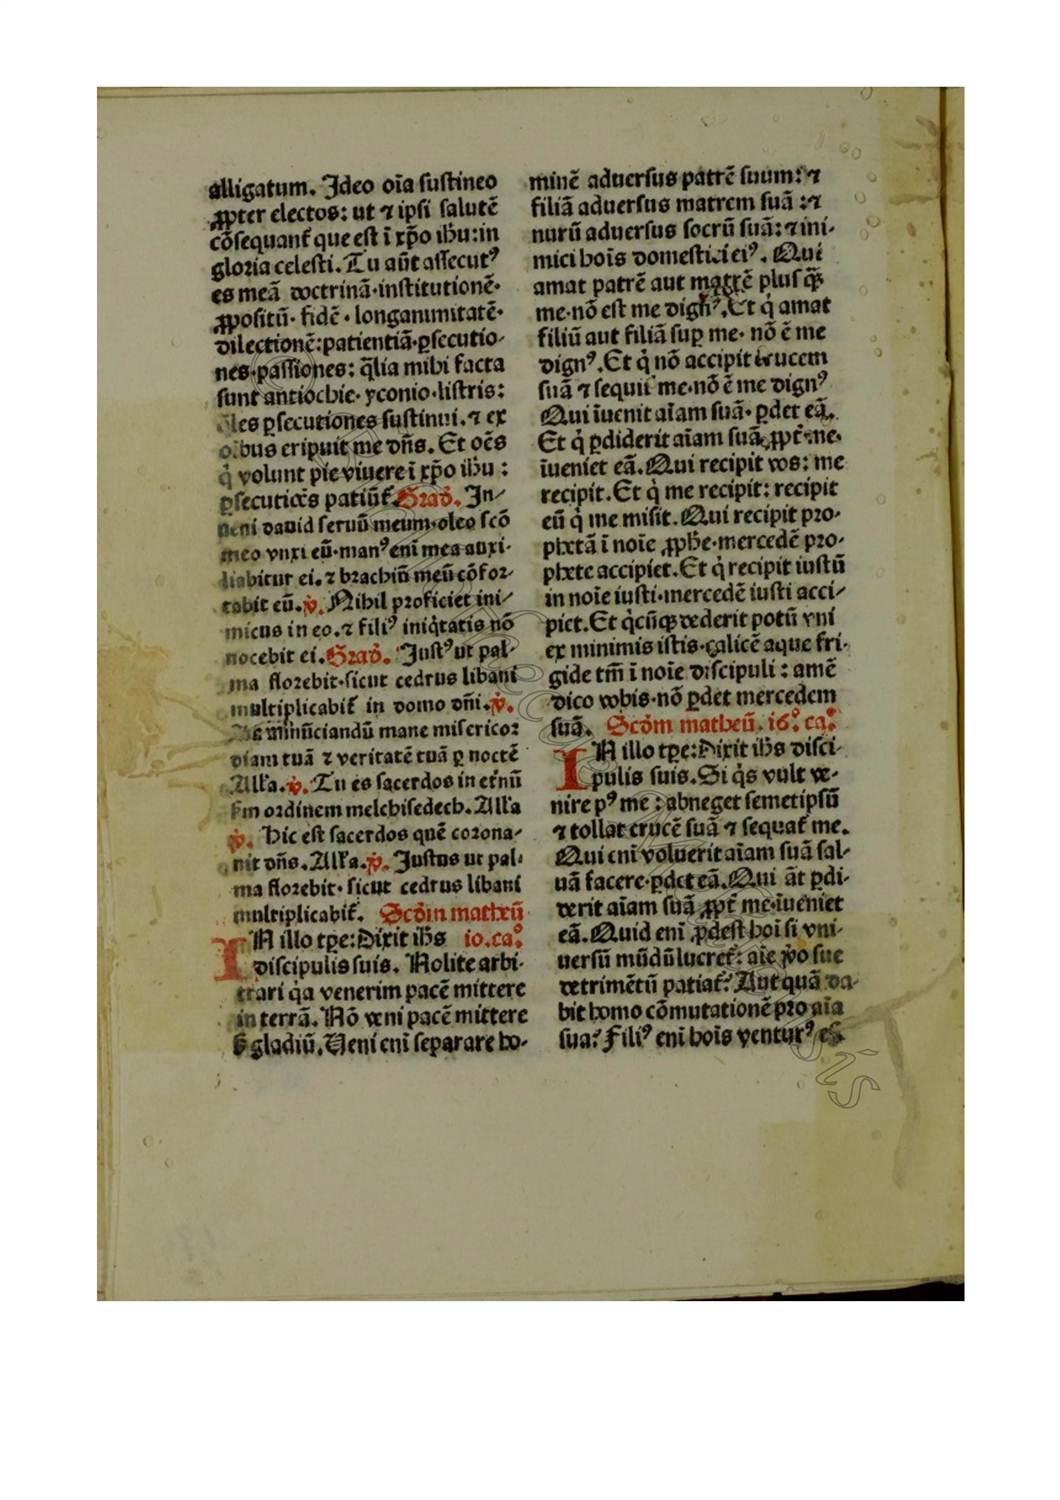 alligatum. Ideo oı̄a sustineo
ꝓpter electos: ut ⁊ ipsi salutē
cōsequant᷑ que est ī xp̄o ihu: in
gloria celesti. Tu aūt assecutꝰ
es meā doctrinā·institutionē·
ꝓpositū· fidē· longanimitatē·
dilectionē: patientiā·ꝑsecutio-
nes·passiones: q̄lia mihi facta
sunt antiochie· yconio·listris:
les ꝑsecutiones sustinui. ⁊ ex
o.bus eripuit me dn̄s. Et oēs
q̇ volunt pie viuere ī xp̄o ihu :
ꝑsecutiōēs patiūt᷑. Grad̄. In-
ueni dauid seruū meum·oleo scō
meo vnxi eū·manꝰ eni mea auxi-
liabitur ei. ⁊ brachiū meū cōfor-
tabit eū. ℣. Nihil proficiet ini-
micus in eo. ⁊ filiꝰ iniq̇tatis nō
nocebit ei. Grad̄. Justꝰ ut pal-
ma florebit·sicut cedrus libani
multiplicabit᷑ in domo dn̄i. ℣.
Ad annūciandū mane misericor
diam tuā ⁊ veritatē tuā ꝑ noctē
Alľa. ℣. Tu es sacerdos in et̄nū
ẜm ordinem melchisedech. Alľa
℣. Hic est sacerdos quē corona-
uit dn̄s. Alľa. ℣. Justus ut pal-
ma florebit· sicut cedrus libani
multiplicabit᷑. Scd̄m matheū
IN illo tꝑe: Dixit ihs̄ io. caᵒ.
discipulis suis. Nolite arbi-
trari q̇a venerim pacē mittere
in terrā. Nō veni pacē mittere
ẜ gladiū. Veni eni separare ho-
minē aduersus patrē suum: ⁊
filiā aduersus matrem suā : ⁊
nurū aduersus socrū suā: ⁊ ini-
mici hoı̄s domestici eiꝰ. Qui
amat patrē aut matrē plus q̄ꝫ
me·nō est me dignꝰ. Et q̇ amat
filiū aut filiā suꝑ me· nō ē me
dignꝰ. Et q̇ nō accipit crucem
suā ⁊ sequit᷑ me·nō ē me dignꝰ
Qui īuenit aı̄am suā· ꝑdet eā.
Et q̇ ꝑdiderit aı̄am suā ꝓpt᷑ me·
īueniet eā. Qui recipit vos: me
recipit. Et q̇ me recipit: recipit
eū q̇ me misit. Qui recipit pro-
phetā ī noı̄e ꝓphe·mercedē pro-
phete accipiet. Et q̇ recipit iustū
in noı̄e iusti·mercedē iusti acci-
piet. Et q̇cūqꝫ dederit potū vni
ex minimis istis·calicē aque fri-
gide tm̄ ī noı̄e discipuli : amē
dico vobis·nō ꝑdet mercedem
suā. Scd̄m matheū. i6ᵒ. caᵒ.
IN illo tꝑe: Dixit ihs̄ disci-
pulis suis. Si q̇s vult ve-
nire pꝰ me : abneget semetipsū
⁊ tollat crucē suā ⁊ sequat᷑ me.
Qui eni voluerit aı̄am suā sal-
uā facere·ꝑdet eā. Qui āt ꝑdi-
derit aı̄am suā ꝓpt᷑ me·īueniet
eā. Quid eni ꝓdest hoı̄ si vni-
uersū mūdū lucret᷑: aı̄e v̊o sue
detrimētū patiat᷑? Aut quā da-
bit homo cōmutationē pro aı̄a
sua? Filiꝰ eni hoı̄s venturꝰ es